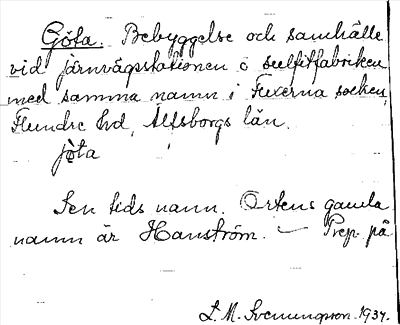 Göta. Bebyggelse och samhälle
vid järnvägsstationen o sulfitfabriken
med samma namn i Fuxerna socken,
Flundre hd, Älfsborgs län.
jöta
Sen tids namn. Ortens gamla
namn är Hanström. — Prep. på
L. M. Svenungsson. 1934.